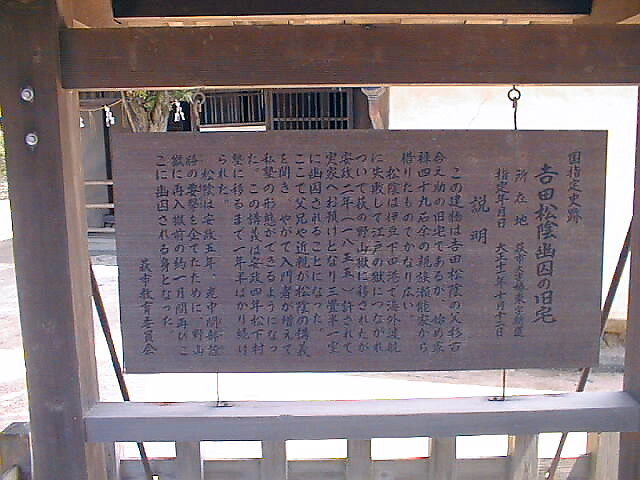 国指定史跡
吉田松陰幽囚の旧宅
所在地 萩市大字椿東字新道
指定年月日 大正十一年十月十二日
説明
この建物は吉田松陰の父杉百
合之助の旧宅であるが、始め家
禄四十九石余の親族瀬能家から
借りたものでかなり広い。
松陰は伊豆下田港で海外渡航
に失敗して江戸の獄につながれ
ついで萩の野山獄に移されたが
安政二年(一八五五)許されて
実家へお預けとなり三畳半一室
に幽囚されることになった。
ここで父兄や近親が松陰の講義
を聞き、やがて入門者が増えて
私塾の形態ができるようになっ
た。この講義は安政四年松下村
塾に移るまで一年半ばかり続け
られた。
松陰は安政五年、老中間部詮
勝の要撃を企てたために野山
獄に再入獄前の約一月間再びこ
こに幽囚される身となった。
萩市教育委員会